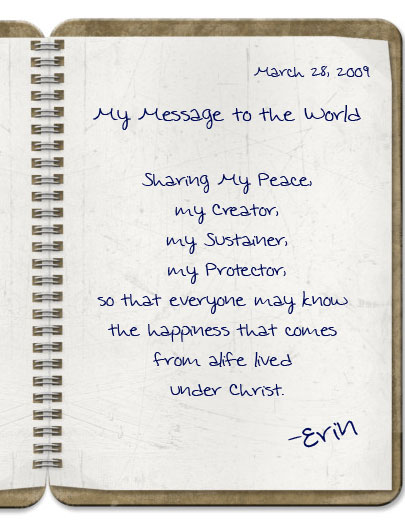 March 28, 2009
My Message to the World
Sharing My Peace,
my Creator,
my Sustainer,
my Protector,
so that everyone may know
the happiness that comes
from alife lived
under Christ.
-Erin